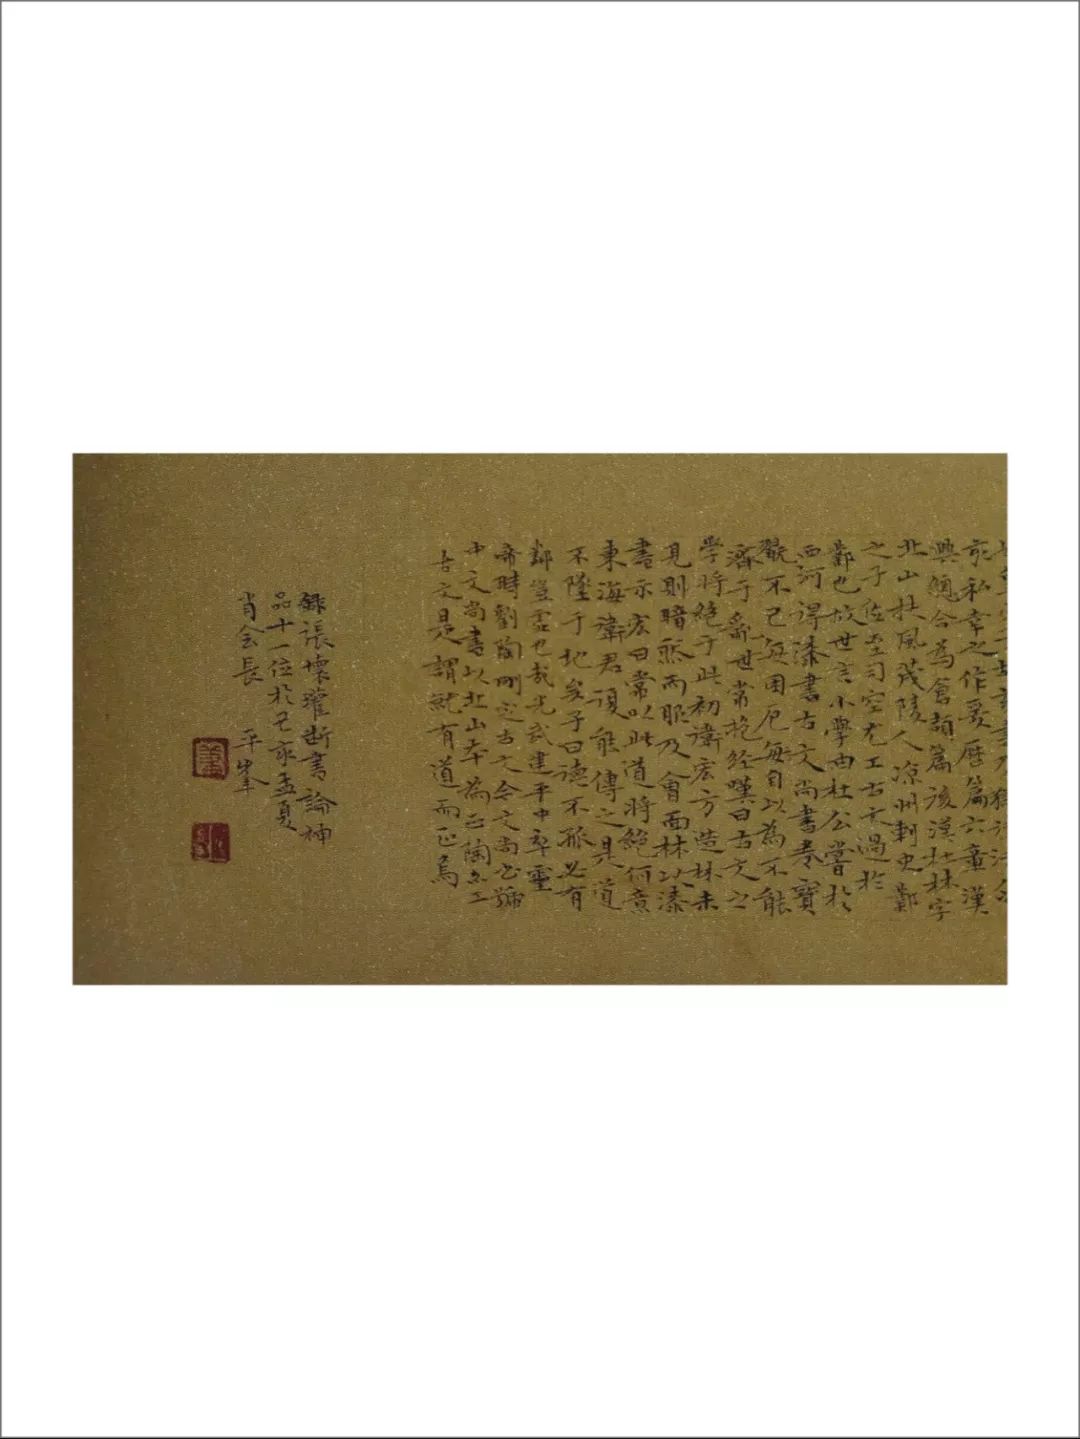 亦私幸之作爰歷篇六章漢
興總合為倉頡篇後漢杜林字
北山扶風茂陵人涼州刺史鄴
之子佐至司空尤工古文過於
鄴也故世言小學由杜公嘗於
西河得漆書古文尚書卷寶
翫不已每困厄每自以為不能
濟于斯世常抱經嘆曰古文之
學將絕于此初衛宏方造林未
見則暗然而服及會面林以漆
書示宏曰常以此道將絕何意
東海衛君復能傳之是道
不墜于地矣子曰德不孤必有
鄰豈虛也哉光武建平中卒靈
帝時劉陶刪定古文今文尚書號
中文尚書以北山本為正陶亦工
古文是謂就有道而正焉
錄張懷瓘斷書論神
品十一位於己亥孟夏
肖会長 平峯